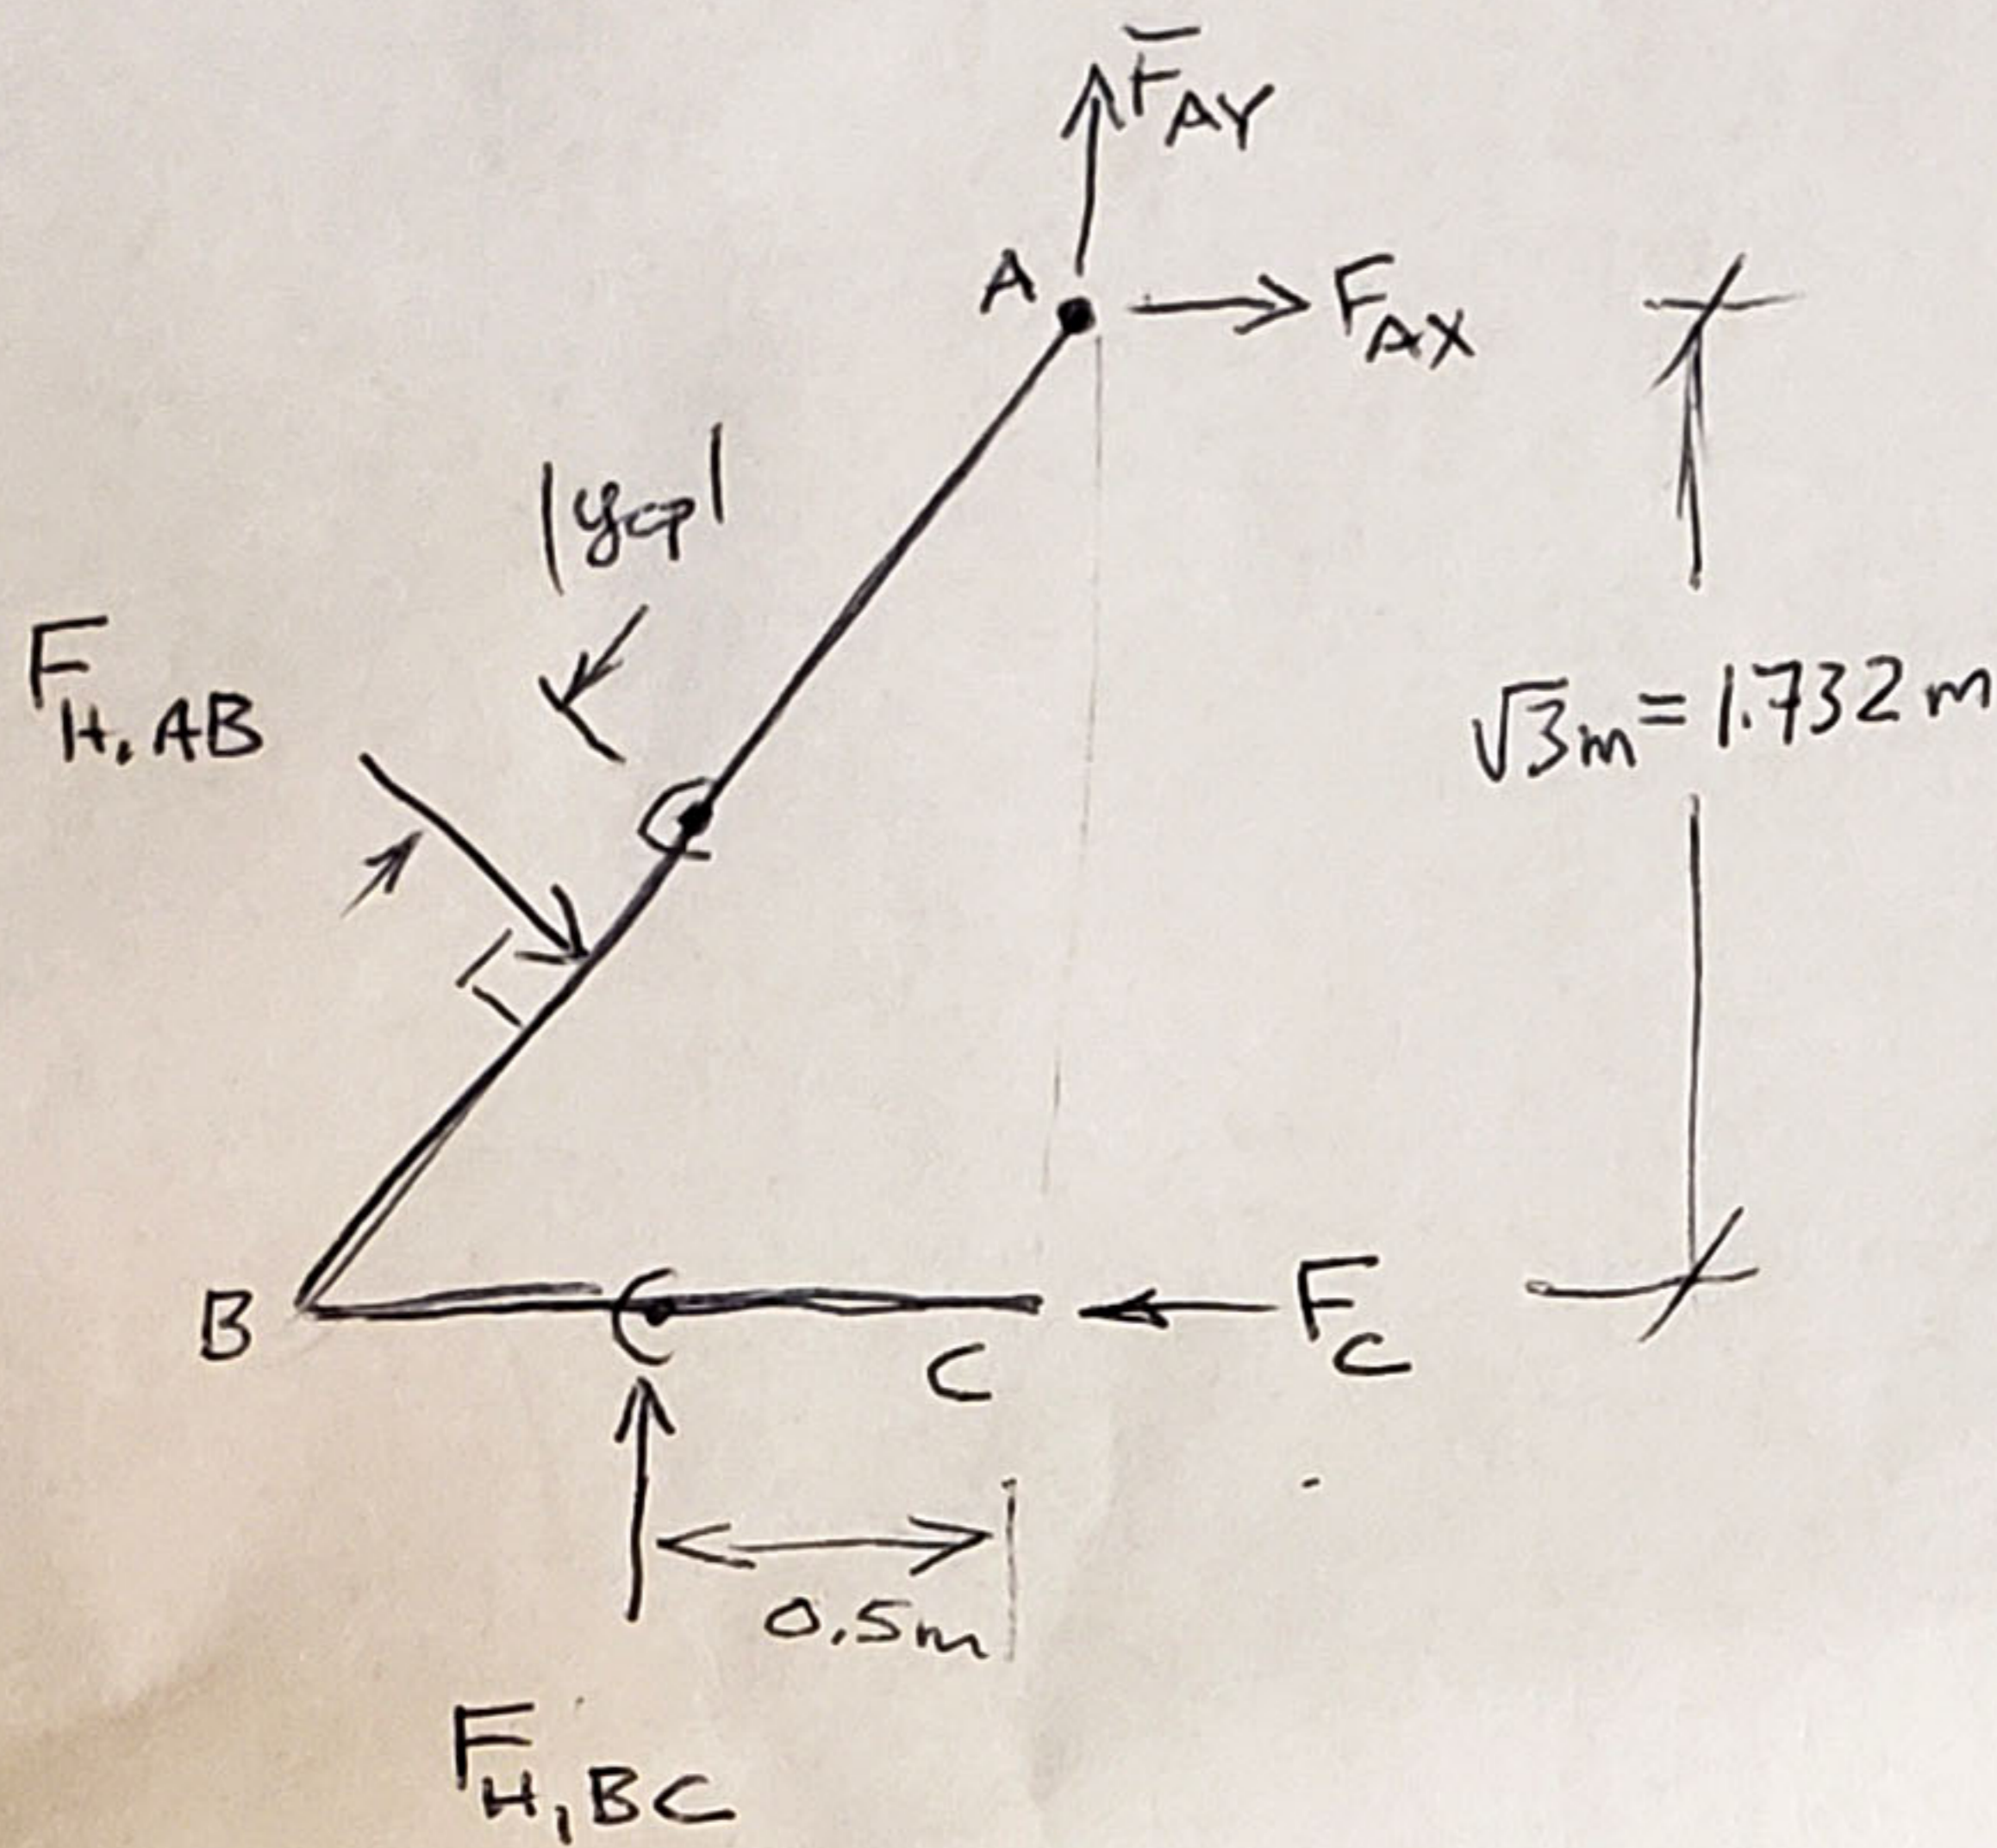 F̄AY
A
FAX
|ycp|
FH,AB
√3m = 1.732 m
B
C
FC
0.5m
FH,BC